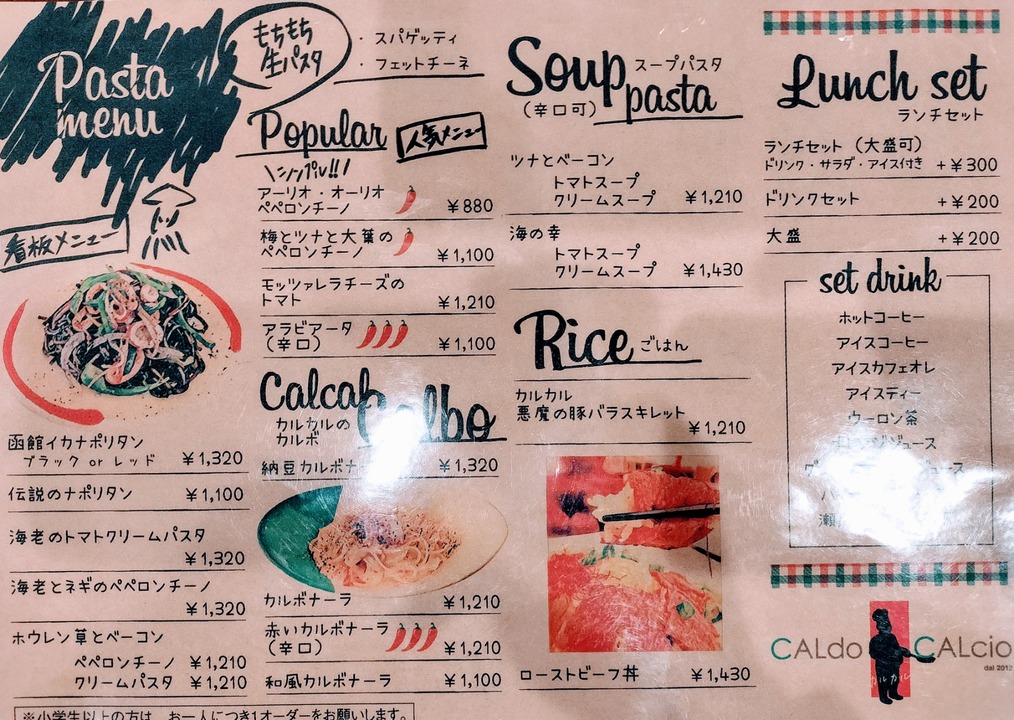 Pasta
menu
もちもち
生パスタ
・スパゲッティ
・フェットチーネ
看板メニュー
函館イカナポリタン
ブラック or レッド ¥1,320
伝説のナポリタン ¥1,100
海老のトマトクリームパスタ
¥1,320
海老とネギのペペロンチーノ
¥1,320
ホウレン草とベーコン
ペペロンチーノ ¥1,210
クリームパスタ ¥1,210
※小学生以上の方は、お一人につき1オーダーをお願いします。
Popular 人気メニュー
\シンプル!!/
アーリオ・オーリオ
ペペロンチーノ ¥880
梅とツナと大葉の
ペペロンチーノ ¥1,100
モッツァレラチーズの
トマト ¥1,210
アラビアータ
(辛口) ¥1,100
Calcal
カルカルの
カルボ
納豆カルボナーラ ¥1,320
カルボナーラ ¥1,210
赤いカルボナーラ
(辛口) ¥1,210
和風カルボナーラ ¥1,100
Soup スープパスタ
(辛口可) pasta
ツナとベーコン
トマトスープ
クリームスープ ¥1,210
海の幸
トマトスープ
クリームスープ ¥1,430
Rice ごはん
カルカル
悪魔の豚バラスキレット
¥1,210
ローストビーフ丼 ¥1,430
Lunch set
ランチセット
ランチセット(大盛可)
ドリンク・サラダ・アイス付き +¥300
ドリンクセット +¥200
大盛 +¥200
set drink
ホットコーヒー
アイスコーヒー
アイスカフェオレ
アイスティー
ウーロン茶
CALdo CALcio
カルカル
dal 2012